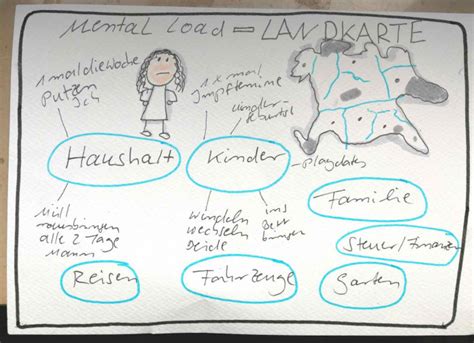 Mental Load = LANDKARTE
1 mal die Woche
Putzen
Ich
1 x mal
Impftermine
Kinder-
Geburtst
Haushalt
Kinder
- Playdates
Familie
Müll
rausbringen
alle 2 Tage
Mann
Windeln
wechseln
Beide
ins
Bett
bringen
Steuer/Finanzen
Reisen
Fahrzeuge
Garten